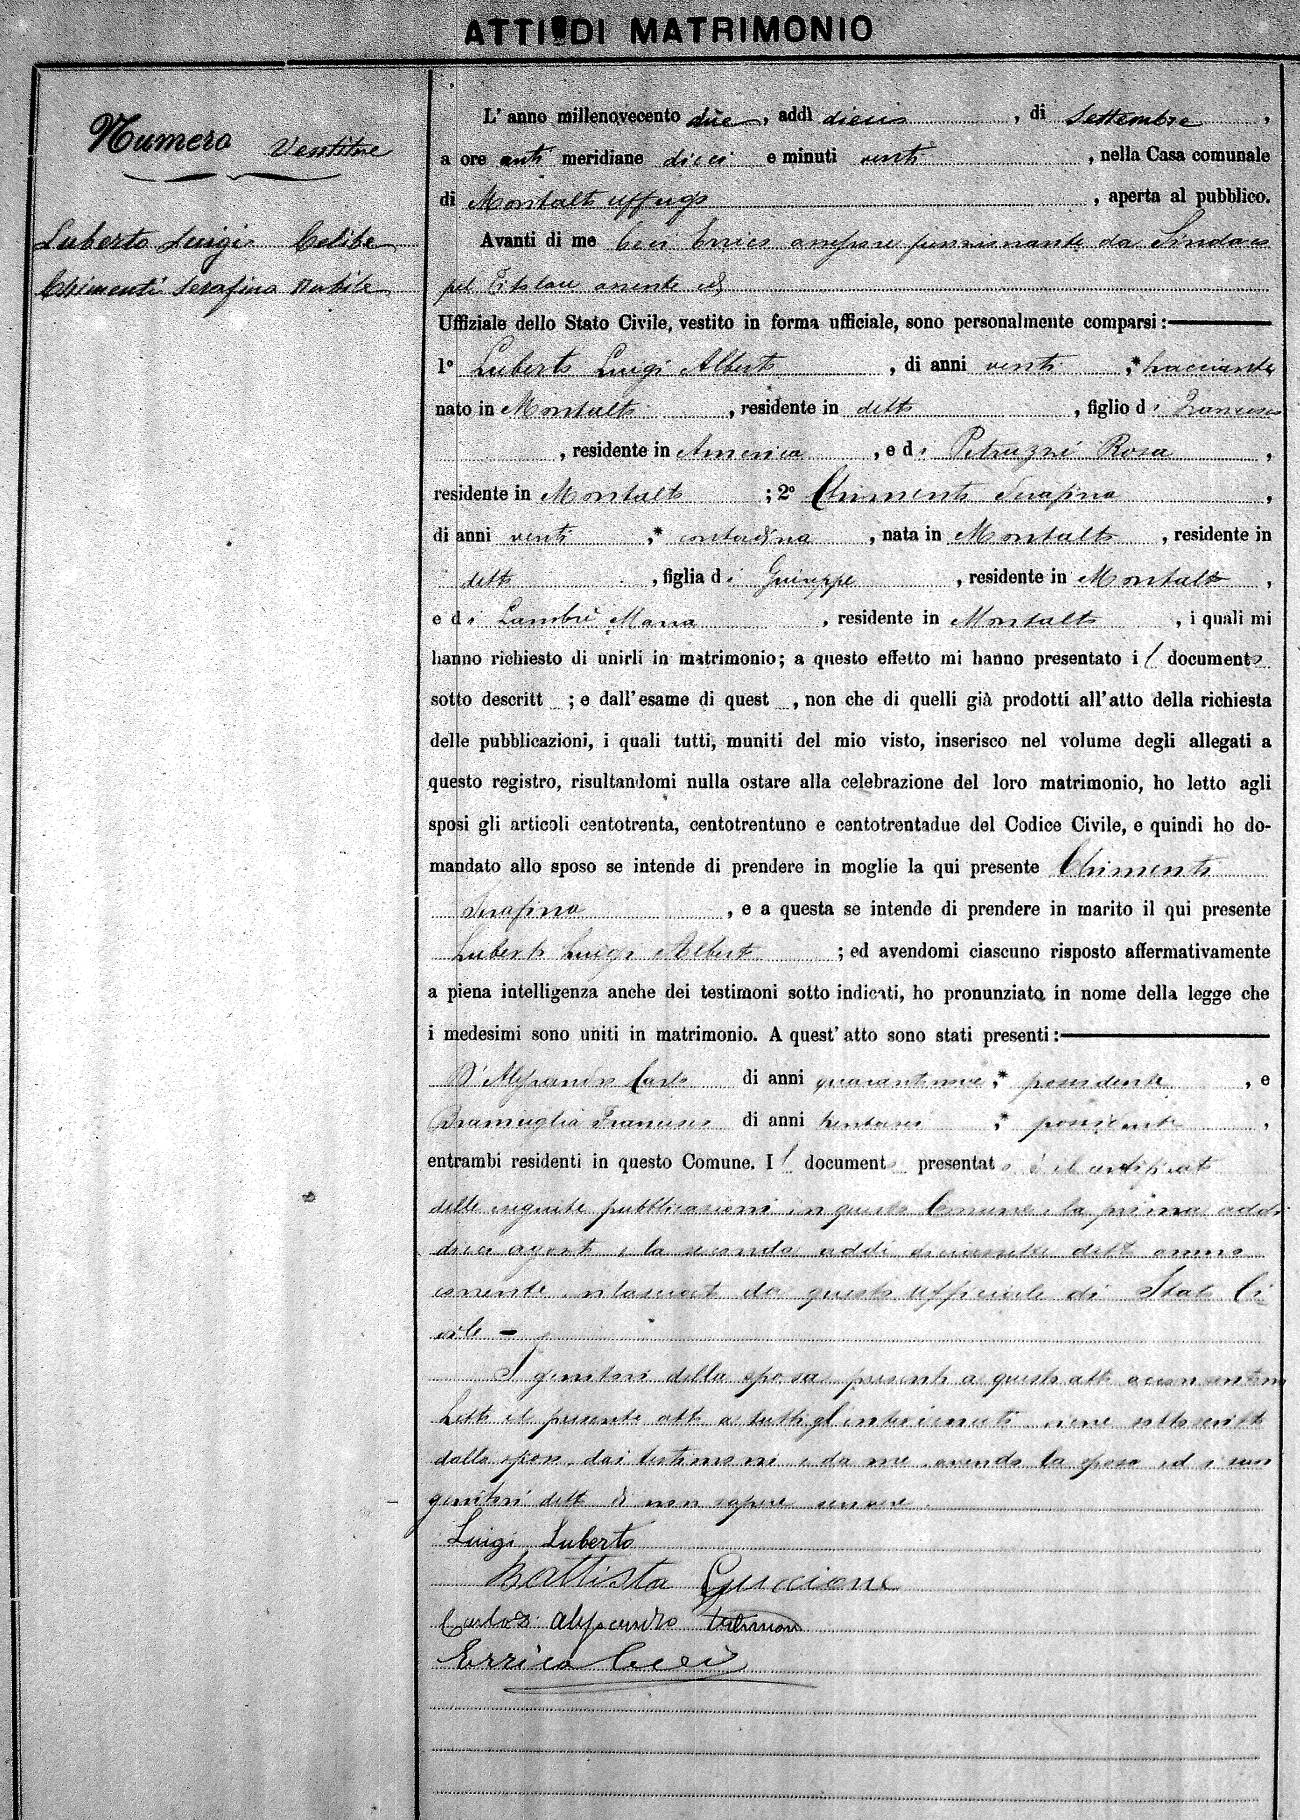 ATTI DI MATRIMONIO
Numero Ventitre
Luberto Luigi Celibe
Chimenti Serafina Nubile
L' anno millenovecento due, addì dieci, di Settembre,
a ore anti meridiane dieci e minuti venti, nella Casa comunale
di Montalto Uffugo, aperta al pubblico.
Avanti di me Ceci Errico assessore funzionante da Sindaco
pel Titolare assente ed
Uffiziale dello Stato Civile, vestito in forma ufficiale, sono personalmente comparsi:
1º Luberto Luigi Alberto, di anni venti,* bracciante
nato in Montalto, residente in detto, figlio di Francesco
, residente in America, e di Petruzzi Rosa,
residente in Montalto; 2º Chimenti Serafina,
di anni venti,* contadina, nata in Montalto, residente in
detto, figlia di Giuseppe, residente in Montalto,
e di Lambri Maria, residente in Montalto, i quali mi
hanno richiesto di unirli in matrimonio; a questo effetto mi hanno presentato il documento
sotto descritt ; e dall'esame di quest , non che di quelli già prodotti all'atto della richiesta
delle pubblicazioni, i quali tutti, muniti del mio visto, inserisco nel volume degli allegati a
questo registro, risultandomi nulla ostare alla celebrazione del loro matrimonio, ho letto agli
sposi gli articoli centotrenta, centotrentuno e centotrentadue del Codice Civile, e quindi ho do-
mandato allo sposo se intende di prendere in moglie la qui presente Chimenti
Serafina, e a questa se intende di prendere in marito il qui presente
Luberto Luigi Alberto; ed avendomi ciascuno risposto affermativamente
a piena intelligenza anche dei testimoni sotto indicati, ho pronunziato in nome della legge che
i medesimi sono uniti in matrimonio. A quest' atto sono stati presenti:
D'Alessandro Carlo di anni quarantanove,* possidente, e
Bramuglia Francesco di anni trentasei,* possidente,
entrambi residenti in questo Comune. Il documento presentato è il certificato
delle eseguite pubblicazioni in questo Comune, la prima addì
dieci agosto e la seconda addì diciassette detto anno
corrente rilasciato da questo ufficiale di Stato Ci
vile -
I genitori della sposa presenti a questo atto acconsentono
Letto il presente atto a tutti gl'intervenuti viene sottoscritto
dallo sposo, dai testimoni e da me avendo la sposa ed i suoi
genitori detto di non sapere scrivere.
Luigi Luberto
Battista Guccione
Carlo D'Alessandro testimone
Errico Ceci